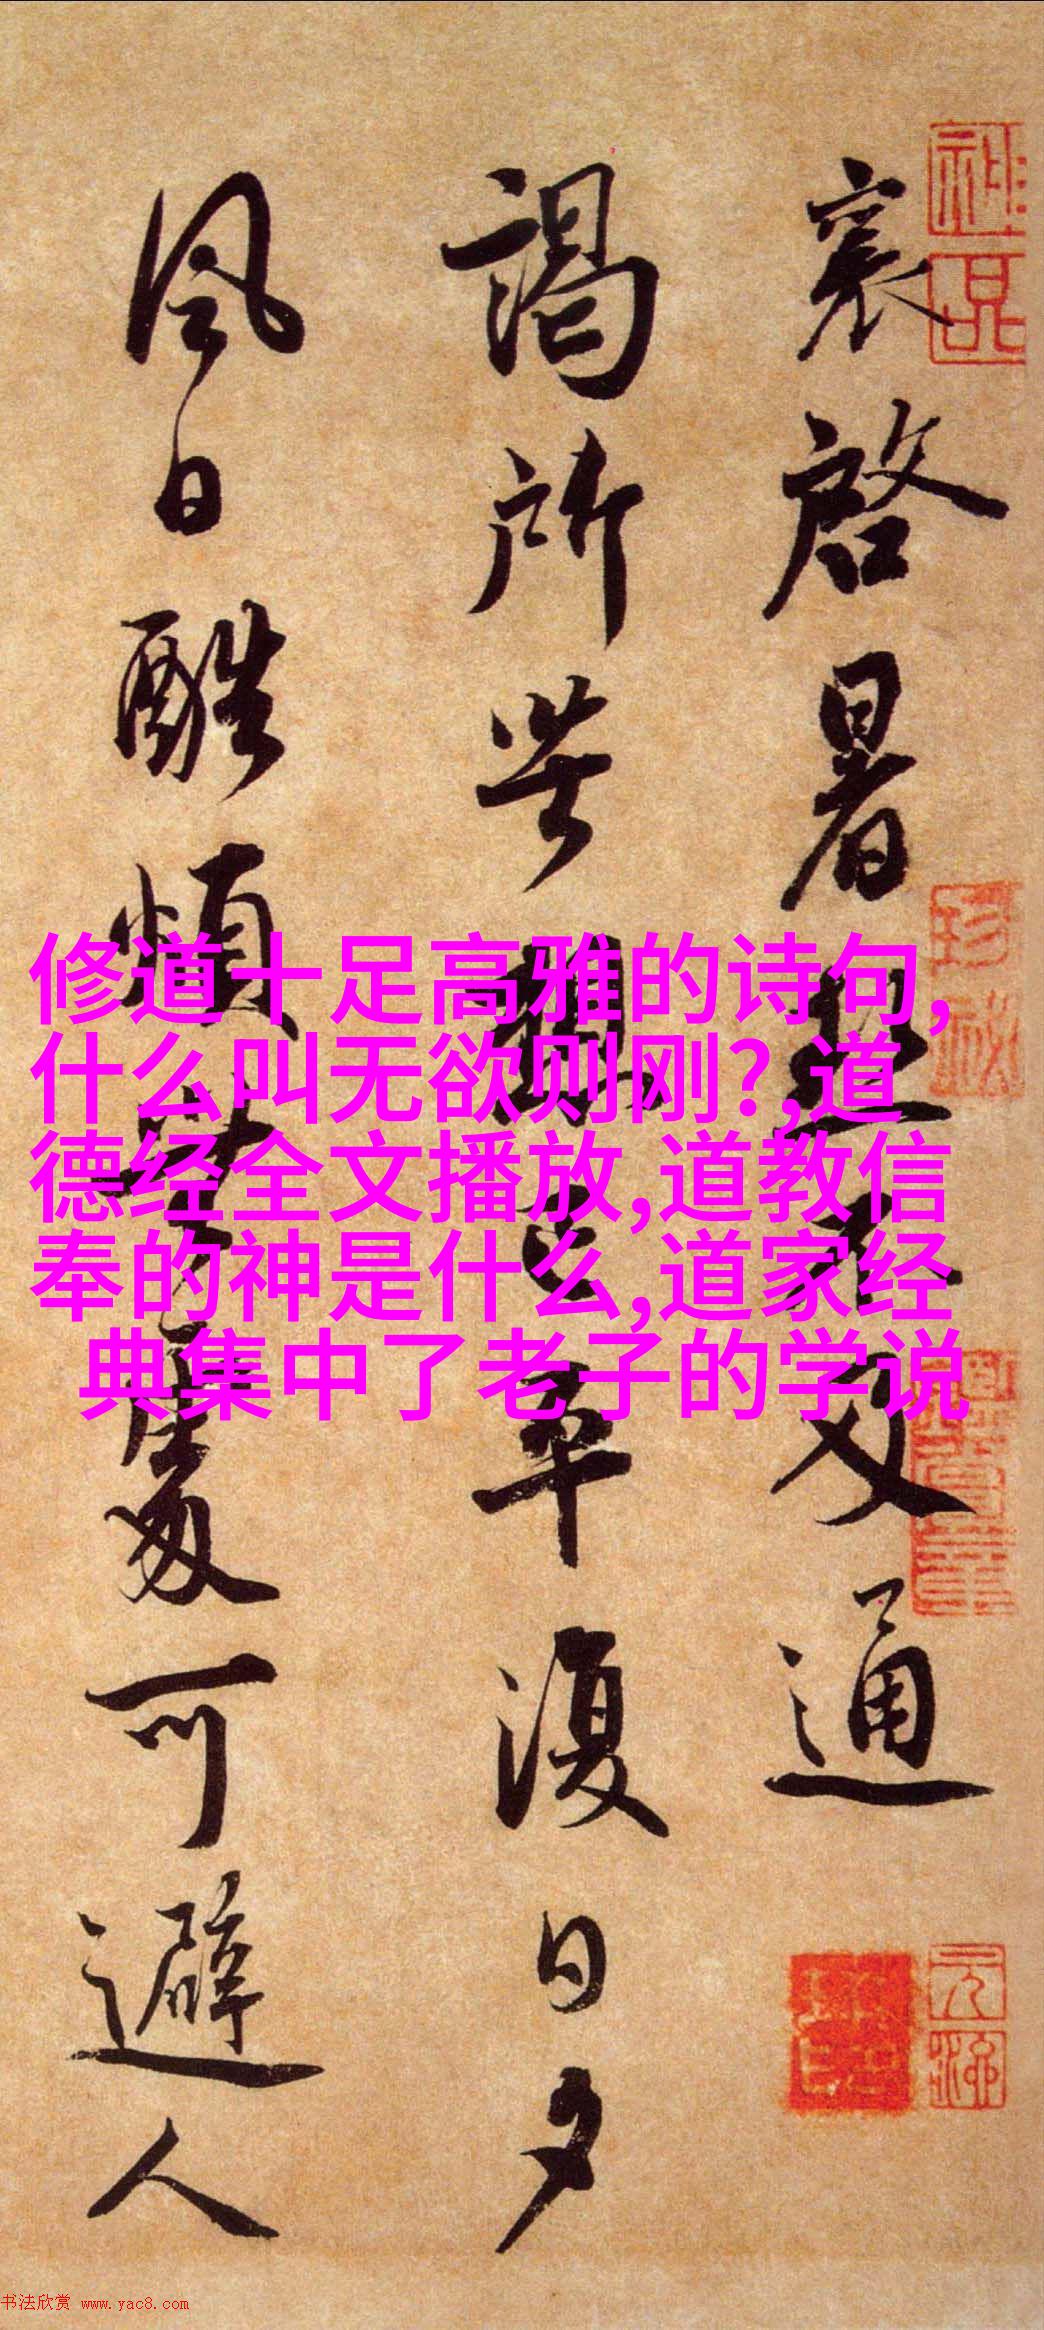 襄啓暑熱不及通
謁所苦想已平復日夕
風日酷煩無處可避人
修道十足高雅的诗句,
什么叫无欲则刚?,道
德经全文播放,道教信
奉的神是什么,道家经
典集中了老子的学说
书法欣赏 www.yac8.com